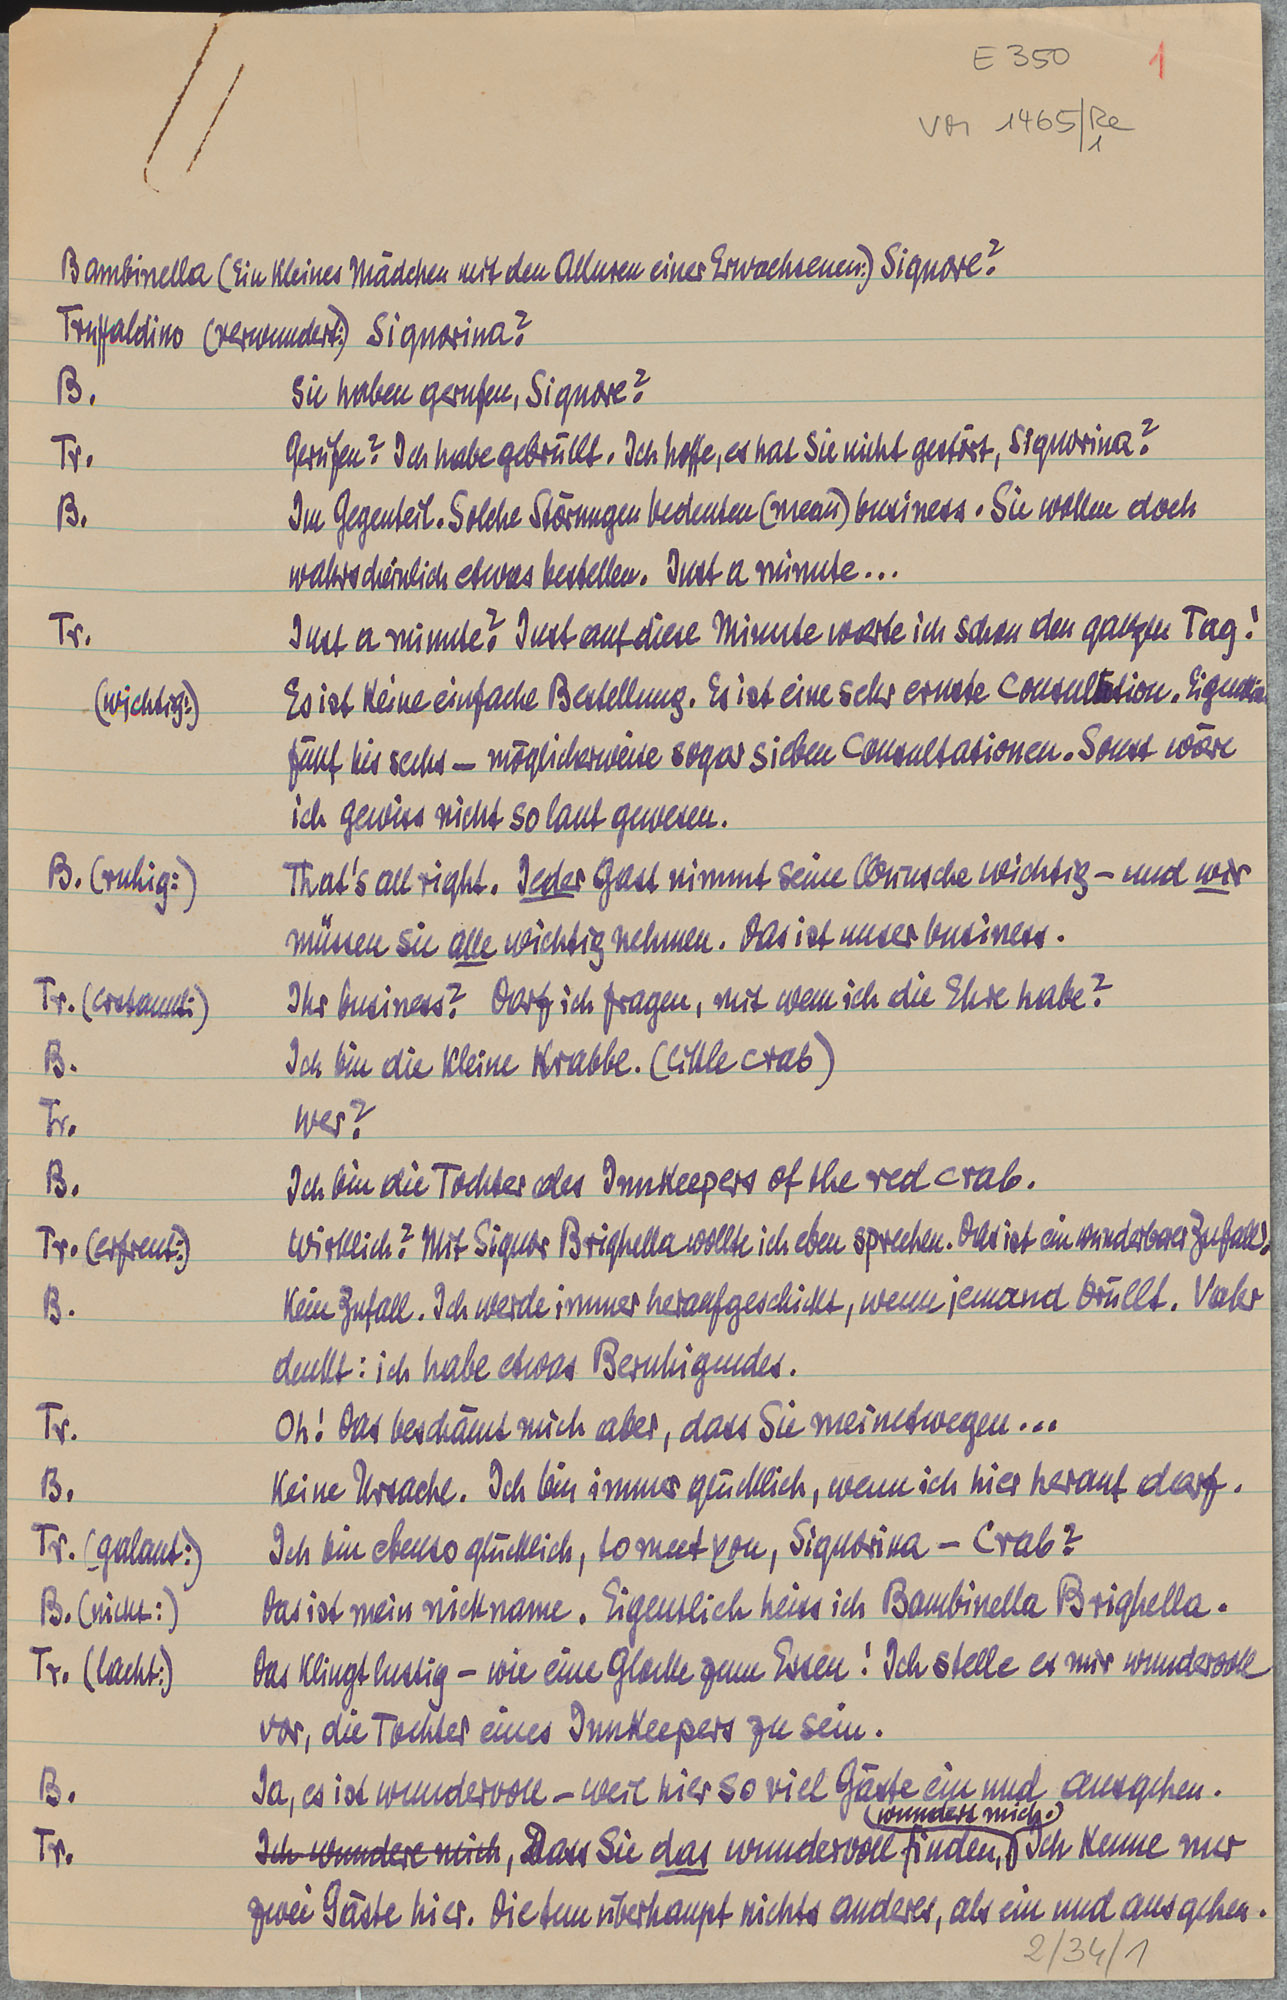 E 350 1
von 1465/Re
1
Bambinella (Ein kleines Mädchen mit den Alluren einer Erwachsenen:) Signore?
Truffaldino (verwundert:) Signorina?
B. Sie haben gerufen, Signore?
Tr. Gerufen? Ich habe gebrüllt. Ich hoffe, es hat Sie nicht gestört, Signorina?
B. Im Gegenteil. Solche Störungen bedeuten (mean) business. Sie wollen doch
wahrscheinlich etwas bestellen. Just a minute...
Tr. Just a minute? Just auf diese Minute warte ich schon den ganzen Tag!
(wichtig:) Es ist keine einfache Bestellung. Es ist eine sehr ernste Consultation. Eigentlich
fünf bis sechs – möglicherweise sogar sieben Consultationen. Sonst wäre
ich gewiss nicht so laut gewesen.
B. (ruhig:) That's all right. Jeder Gast nimmt seine Wünsche wichtig – und wir
müssen sie alle wichtig nehmen. Das ist unser business.
Tr. (erstaunt:) Ihr business? Darf ich fragen, mit wem ich die Ehre habe?
B. Ich bin die kleine Krabbe. (little crab)
Tr. Wer?
B. Ich bin die Tochter des Innkeepers of the red crab.
Tr. (erfreut:) Wirklich? Mit Signor Brighella wollte ich eben sprechen. Das ist ein wunderbarer Zufall!
B. Kein Zufall. Ich werde immer heraufgeschickt, wenn jemand brüllt. Vater
denkt: ich habe etwas Beruhigendes.
Tr. Oh! Das beschämt mich aber, dass Sie meinetwegen...
B. Keine Ursache. Ich bin immer glücklich, wenn ich hier herauf darf.
Tr. (galant:) Ich bin ebenso glücklich, to meet you, Signorina – Crab?
B. (nickt:) Das ist mein nickname. Eigentlich heiss ich Bambinella Brighella.
Tr. (lacht:) Das klingt lustig – wie eine Glocke zum Essen! Ich stelle es mir wundervoll
vor, die Tochter eines Innkeepers zu sein.
B. Ja, es ist wundervoll – weil hier so viel Gäste ein und ausgehen.
(wundert mich.)
Tr. Ich wundere mich, Dass Sie das wundervoll finden, Ich kenne nur
zwei Gäste hier. Die tun überhaupt nichts anderes, als ein und ausgehen.
2/34/1